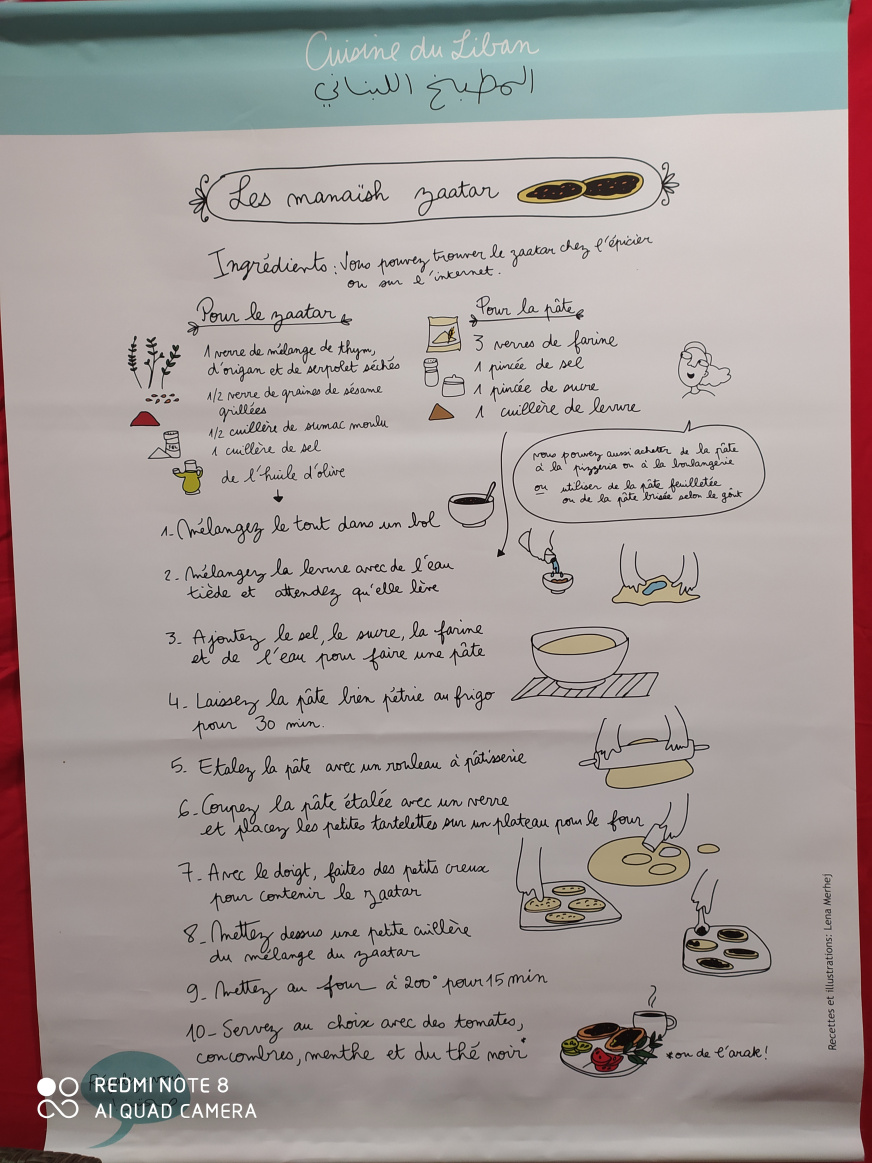 Cuisine du Liban
المطبخ اللبناني
Les manaïsh zaatar
Ingrédients : Vous pouvez trouver le zaatar chez l'épicier
ou sur l'internet.
Pour le zaatar
1 verre de mélange de thym,
d'origan et de serpolet séchés
1/2 verre de graines de sésame
grillées
1/2 cuillère de sumac moulu
1 cuillère de sel
de l'huile d'olive
Pour la pâte
3 verres de farine
1 pincée de sel
1 pincée de sucre
1 cuillère de levure
vous pouvez aussi acheter de la pâte
à la pizzeria ou à la boulangerie
ou utiliser de la pâte feuilletée
ou de la pâte brisée selon le goût
1. Mélangez le tout dans un bol
2. Mélangez la levure avec de l'eau
tiède et attendez qu'elle lève
3. Ajoutez le sel, le sucre, la farine
et de l'eau pour faire une pâte
4. Laissez la pâte bien pétrie au frigo
pour 30 min.
5. Etalez la pâte avec un rouleau à pâtisserie
6. Coupez la pâte étalée avec un verre
et placez les petites tartelettes sur un plateau pour le four
7. Avec le doigt, faites des petits creux
pour contenir le zaatar
8. Mettez dessus une petite cuillère
du mélange du zaatar
9. Mettez au four à 200° pour 15 min
10. Servez au choix avec des tomates,
concombres, menthe et du thé noir*
*ou de l'arak !
Recettes et illustrations: Lena Merhej
REDMI NOTE 8
AI QUAD CAMERA